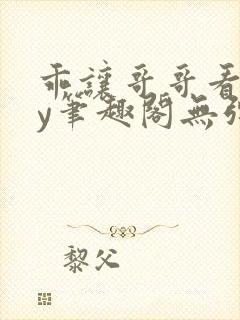 乖讓哥哥看
y筆趣閣無彈
黎父